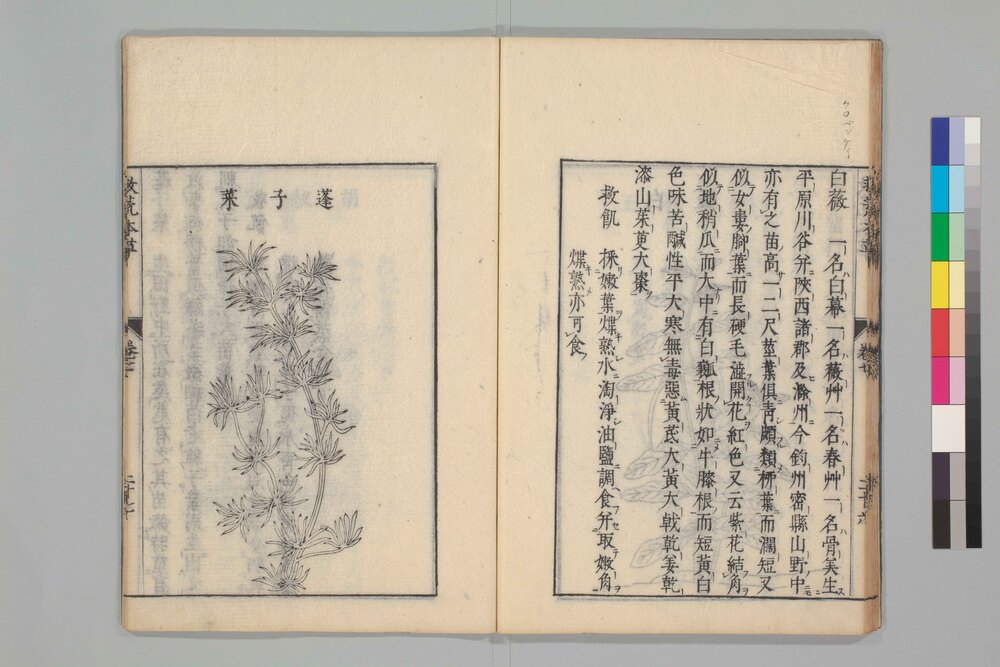 クロベンケイ
白薇 一名白幕一名薇艸一名春艸一名骨美生
平原川谷并陝西諸郡及滁州今鈞州密縣山野中
亦有之苗高一二尺莖葉俱青頗類柳葉而濶短又
似女婁脚葉而長硬毛澁開花紅色又云紫花結角
似地稍瓜而大中有白瓤根状如牛膝根而短黃白
色味苦鹹性平大寒無毒惡黃芪大黃大戟乾姜乾
漆山茱萸大棗
救飢 採嫩葉煠熟水淘淨油鹽調食并取嫩角
煠熟亦可食
蓬子菜
救荒本草